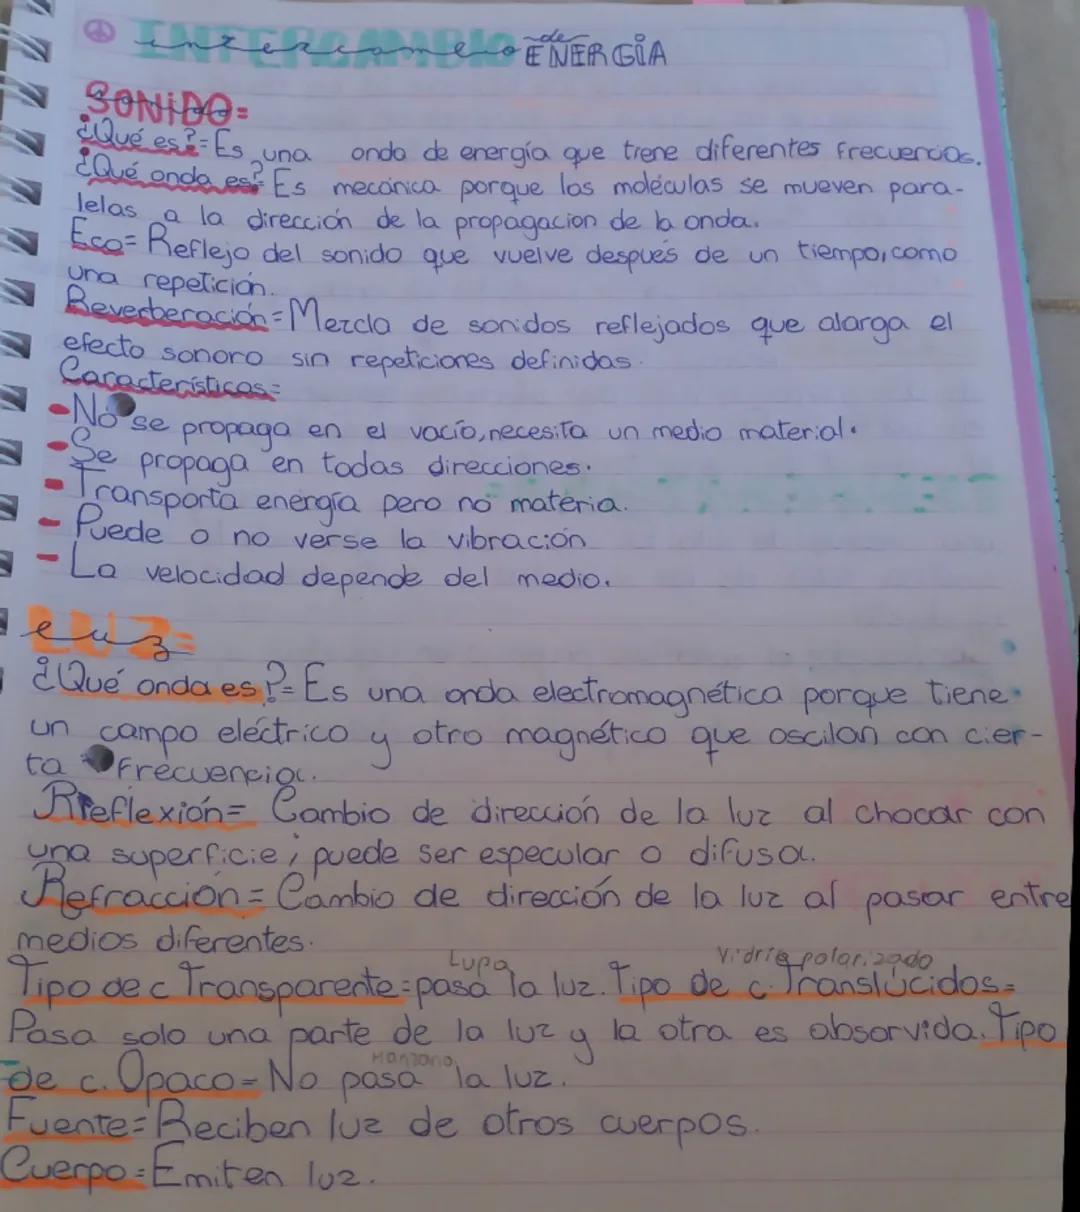 intercambio de ENERGÍA
SONIDO=
¿Qué es?=Es una onda de energía que tiene diferentes frecuencias.
¿Qué onda es?=Es mecánica porque las moléculas se mueven para-
lelas a la dirección de la propagacion de la onda.
Eco=Reflejo del sonido que vuelve después de un tiempo, como
una repetición.
Reverberación=Mezcla de sonidos reflejados que alarga el
efecto sonoro sin repeticiones definidas.
Características=
-No se propaga en el vacío, necesita un medio material.
-Se propaga en todas direcciones.
-Transporta energía pero no materia.
-Puede o no verse la vibración
-La velocidad depende del medio.
LUZ=
¿Qué onda es?=Es una onda electromagnética porque tiene
un campo eléctrico y otro magnético que oscilan con cier-
ta frecuencia.
Reflexión=Cambio de dirección de la luz al chocar con
una superficie, puede ser especular o difusa.
Refracción=Cambio de dirección de la luz al pasar entre
medios diferentes.
Lupa Vidrio polarizado
Tipo de c Transparente=pasa la luz. Tipo de c. Translúcidos=
Pasa solo una parte de la luz y la otra es absorvida. Tipo
Manzana
de c. Opaco=No pasa la luz.
Fuente=Reciben luz de otros cuerpos.
Cuerpo=Emiten luz.